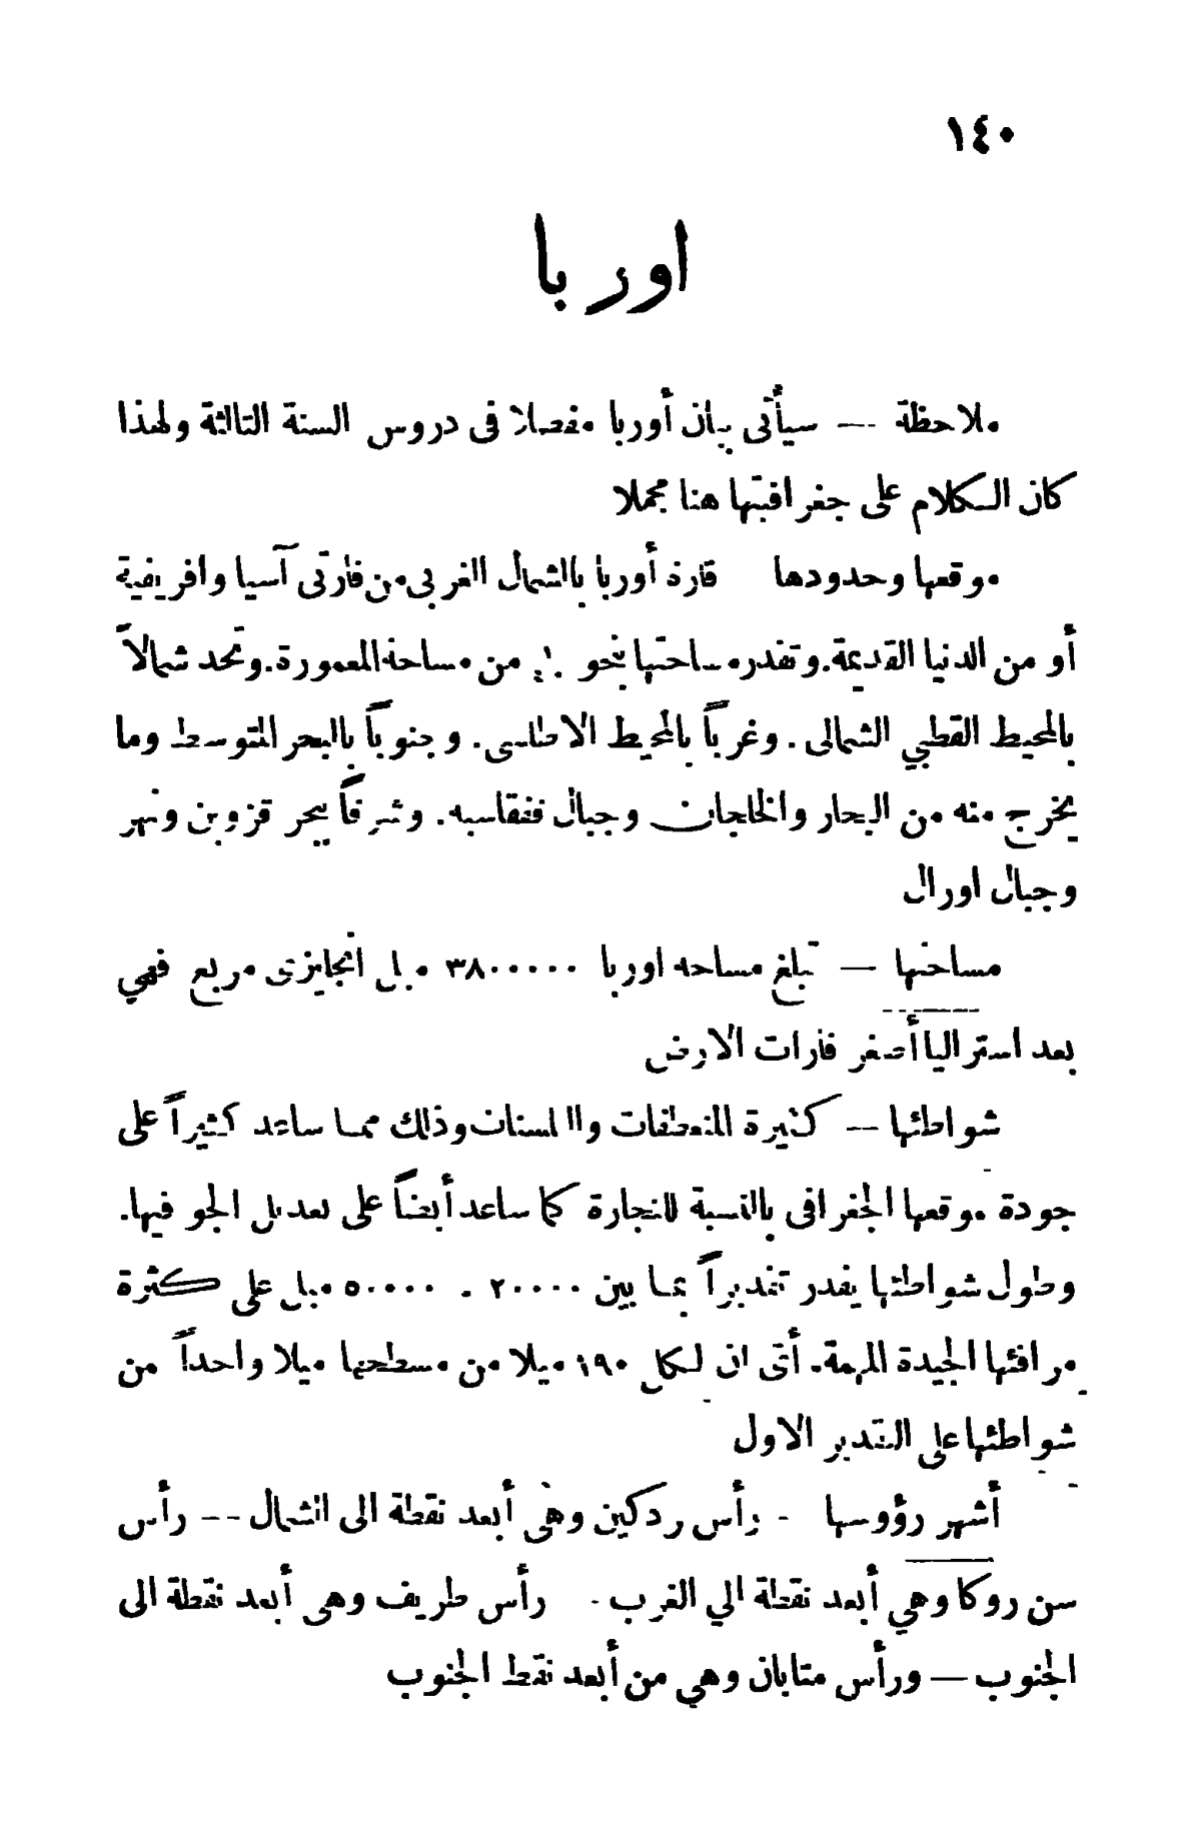 ١٤٠
اوربا
ملاحظة — سيأتى بيان أوربا مفصلا فى دروس السنة الثالثة ولهذا
كان الكلام على جغرافيتها هنا مجملا
موقعها وحدودها قارة أوربا بالشمال الغربى من قارتى آسيا وافريقية
أو من الدنيا القديمة. وتقدر مساحتها بنحو من مساحة المعمورة. وتحد شمالاً
بالمحيط القطبي الشمالى. وغرباً بالمحيط الاطلسى. وجنوباً بالبحر المتوسط وما
يخرج منه من البحار والخلجان وجبال قفقاسيه. وشرقاً ببحر قزوين ونهر
وجبال اورال
مساحتها — تبلغ مساحة اوربا ٣٨٠٠٠٠٠ ميل انجليزى مربع فهي
بعد استراليا أصغر قارات الارض
شواطئها — كثيرة المنعطفات والالسنات وذلك مما ساعد كثيراً على
جودة موقعها الجغرافى بالنسبة للتجارة كما ساعد أيضاً على تعديل الجو فيها.
وطول شواطئها يقدر تقديراً بما بين ٢٠٠٠٠ - ٥٠٠٠٠ ميل على كثرة
مرافئها الجيدة المهمة. أتى ان لكل ١٩٠ ميلا من مسطحها ميلا واحداً من
شواطئها على التقدير الاول
أشهر رؤوسها - رأس ردكين وهى أبعد نقطة الى الشمال -- رأس
سن روكا وهي أبعد نقطة الي الغرب - رأس طريف وهى أبعد نقطة الى
الجنوب — ورأس متابان وهي من أبعد نقط الجنوب